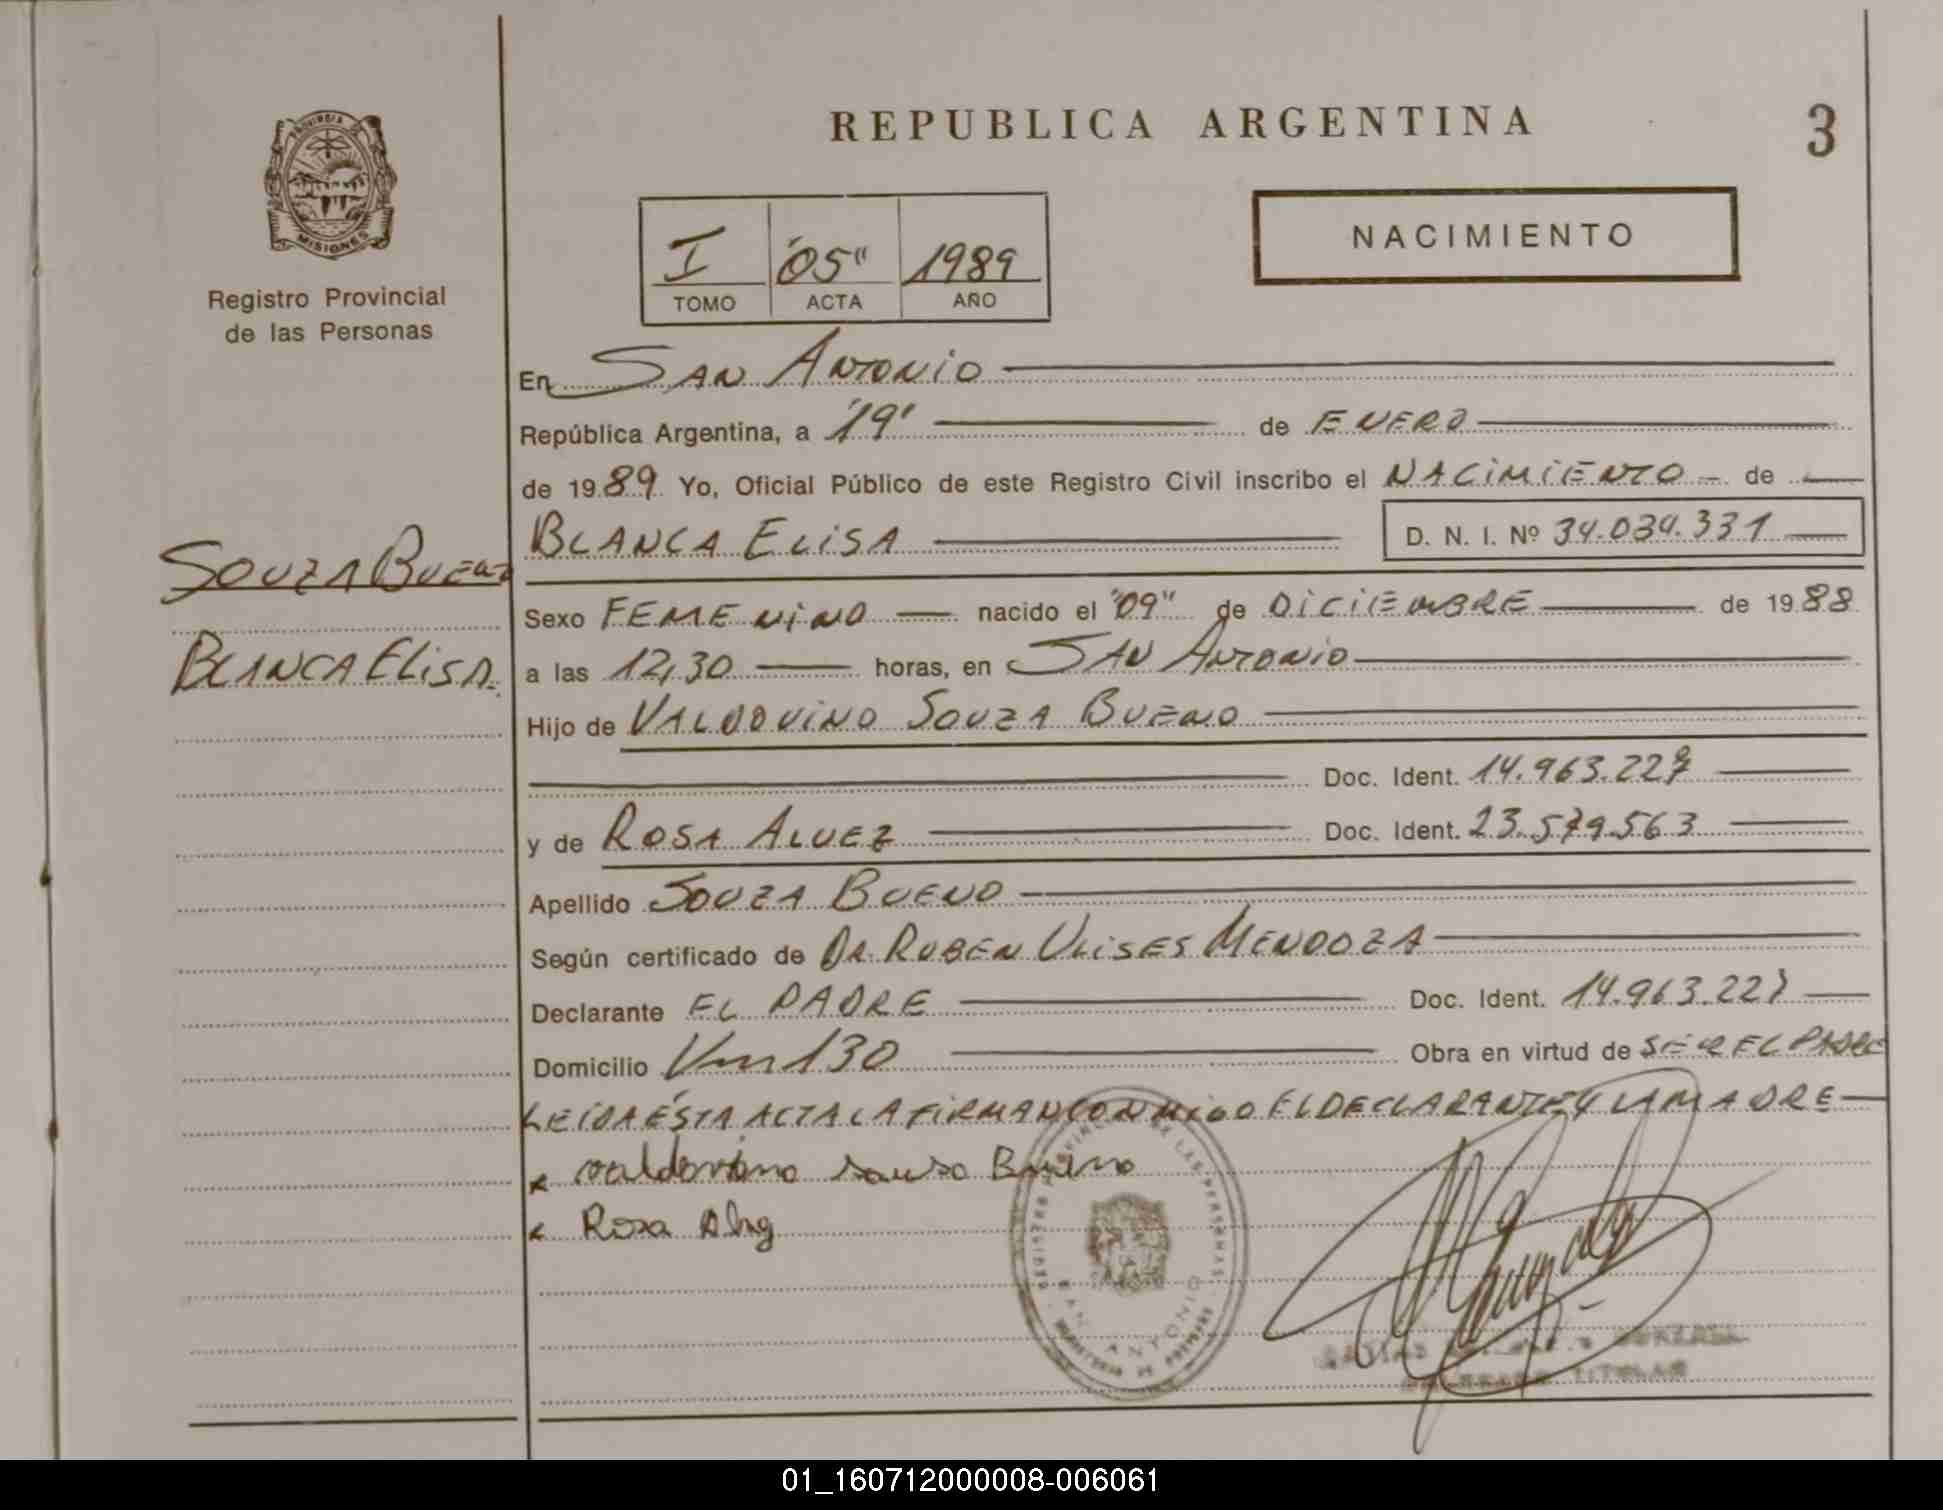 REPUBLICA ARGENTINA
3
PROVINCIA DE
MISIONES
Registro Provincial
de las Personas
I "05" 1989
TOMO ACTA AÑO
NACIMIENTO
En SAN ANTONIO
República Argentina, a "19" de ENERO
de 1989 Yo, Oficial Público de este Registro Civil inscribo el NACIMIENTO de
BLANCA ELISA D. N. I. Nº 34.034.331
SOUZA BUENO
BLANCA ELISA.
Sexo FEMENINO nacido el "09" de DICIEMBRE de 1988
a las 12,30 horas, en SAN ANTONIO
Hijo de VALDOVINO SOUZA BUENO
Doc. Ident. 14.963.227
y de ROSA ALVEZ Doc. Ident. 23.579.563
Apellido SOUZA BUENO
Según certificado de DR. RUBEN ULISES MENDOZA
Declarante EL PADRE Doc. Ident. 14.963.227
Domicilio Km 130 Obra en virtud de SER EL PADRE
LEIDA ÉSTA ACTA LA FIRMAN CONMIGO EL DECLARANTE Y LA MADRE
x valdovino souza Bueno
x Rosa
REGISTRO PROVINCIAL DE LAS PERSONAS
SAN ANTONIO
TITULAR
01_160712000008-006061